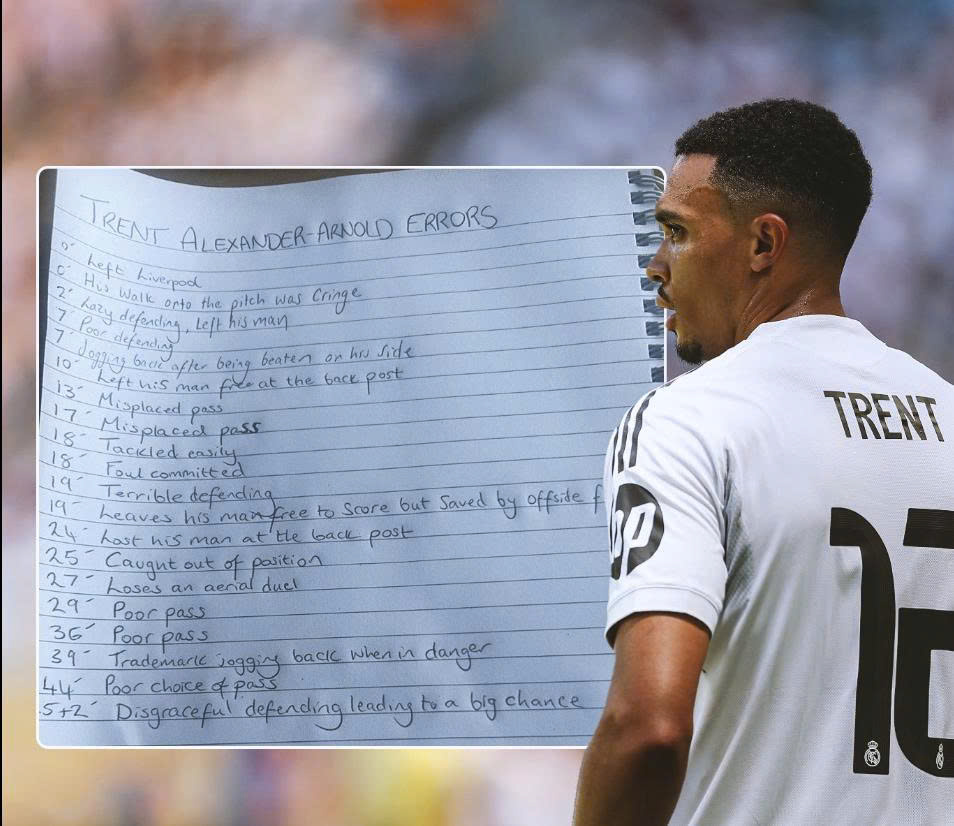 TRENT ALEXANDER-ARNOLD ERRORS
0' Left Liverpool
0' His walk onto the pitch was Cringe
2' Lazy defending, left his man
7' Poor defending
7' Jogging back after being beaten on his side
10' Left his man free at the back post
13' Misplaced pass
17' Misplaced pass
18' Tackled easily
18' Foul committed
19' Terrible defending
19' Leaves his man free to score but saved by offside f
24' Lost his man at the back post
25' Caught out of position
27' Loses an aerial duel
29' Poor pass
36' Poor pass
39' Trademark jogging back when in danger
44' Poor choice of pass
5+2' Disgraceful defending leading to a big chance
TRENT
12
hp